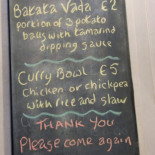 Batata Vada £2
portion of 3 potato
balls with tamarind
dipping sauce
Curry Bowl £5
Chicken or chickpea
with rice and slaw
THANK YOU
Please come again